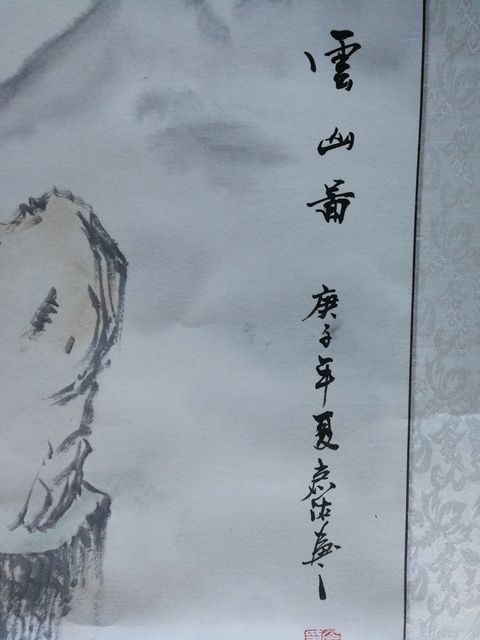 雲山圖 庚子年夏